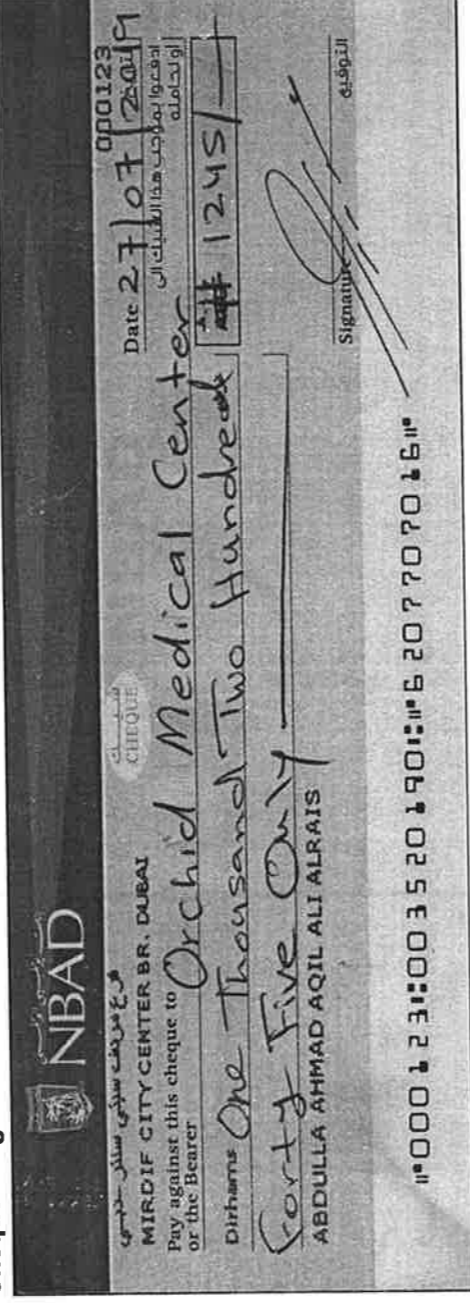 NBAD
000123
فرع مردف سيتي سنتر دبي
MIRDIF CITY CENTER BR. DUBAI
شيك
CHEQUE
Date 27/07/2019
Pay against this cheque to Orchid Medical Center ادفعوا بموجب هذا الشيك الى
or the Bearer أو لحامله
Dirhams One Thousand Two Hundred # 1245/-
Forty Five Only
ABDULLA AHMAD AQIL ALI ALRAIS
Signature التوقيع
⑈000123⑆003520190⑆⑈6207707016⑈